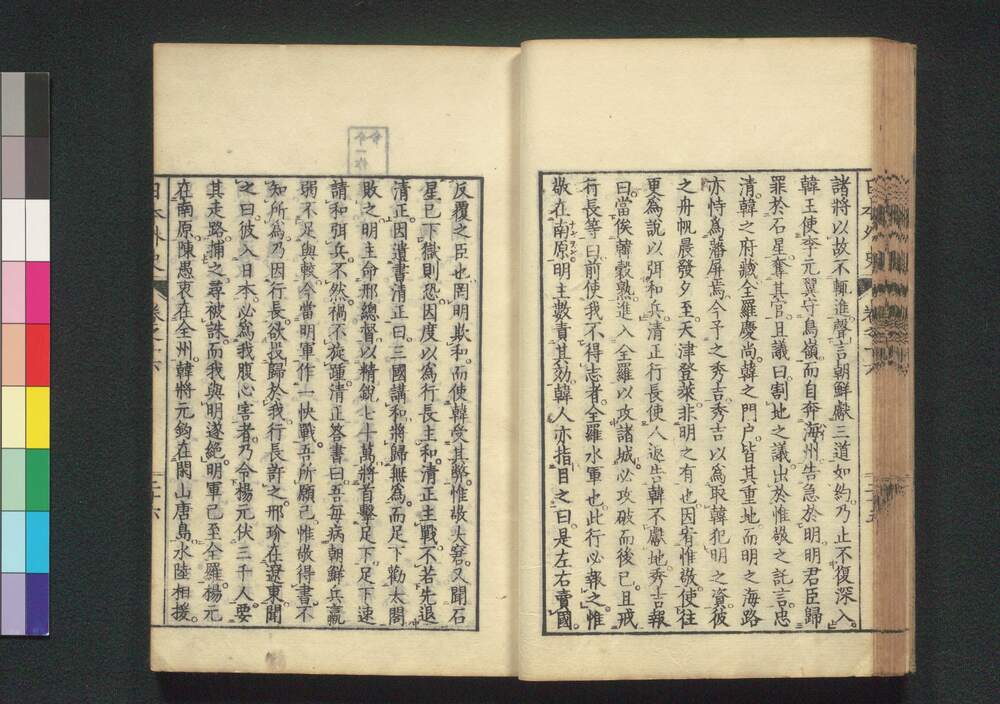 諸將以故不輒進聲言朝鮮獻三道如約乃止不復深入
韓王使李元翼守鳥嶺而自奔海州告急於明明君臣歸
罪於石星奪其官且議曰割地之議出於惟敬之託言忠
清韓之府藏全羅慶尚韓之門戶皆其重地而明之海路
亦恃爲藩屏焉今予之秀吉秀吉以爲取韓犯明之資彼
之舟帆晨發夕至天津登萊非明之有也因宥惟敬使往
更爲說以弭和兵清正行長使人返告韓不獻地秀吉報
曰當俟韓穀熟進入全羅以攻諸城必攻破而後已且戒
行長等曰前使我不得志者全羅水軍也此行必報之惟
敬在南原明主數責其効韓人亦指目之曰是左右賣國
反覆之臣也罔明欺和而使韓受其弊惟敬大窘又聞石
星已下獄則恐因度以爲行長主和清正主戰不若先退
清正因遺書清正曰三國講和將歸無爲而足下勸太閤
敗之明主命邢總督以精銳七十萬將首擊足下足下速
請和弭兵不然禍不旋踵清正答書曰吾每病朝鮮兵羸
弱不足與較今當明軍作一快戰吾所願已惟敬得書不
知所爲乃因行長欲投歸於我行長許之邢玠在遼東聞
之曰彼入日本必爲我腹心害者乃令楊元伏三千人要
其走路捕之尋被誅而我與明遂絕明軍已至全羅楊元
在南原陳愚衷在全州韓將元鈞在閑山唐島水陸相援
日本外史
卷之十六